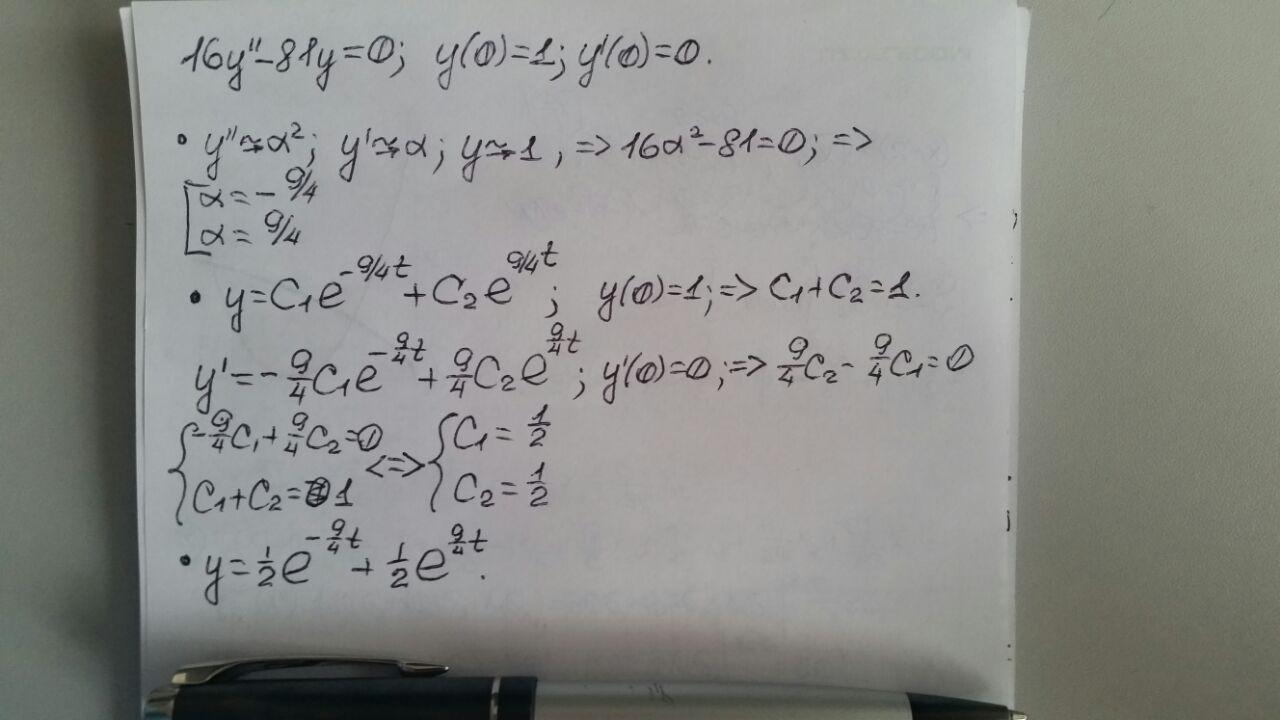 16y''-81y=0; y(0)=1; y'(0)=0.
• y''≈α²; y'≈α; y≈1, => 16α²-81=0; =>
[α=-9/4
α=9/4
• y=C₁e^(-9/4t)+C₂e^(9/4t); y(0)=1; => C₁+C₂=1.
y'=-9/4C₁e^(-9/4t)+9/4C₂e^(9/4t); y'(0)=0; => 9/4C₂-9/4C₁=0
{-9/4C₁+9/4C₂=0 <=> {C₁=1/2
C₁+C₂=1 C₂=1/2
• y=1/2e^(-9/4t)+1/2e^(9/4t).